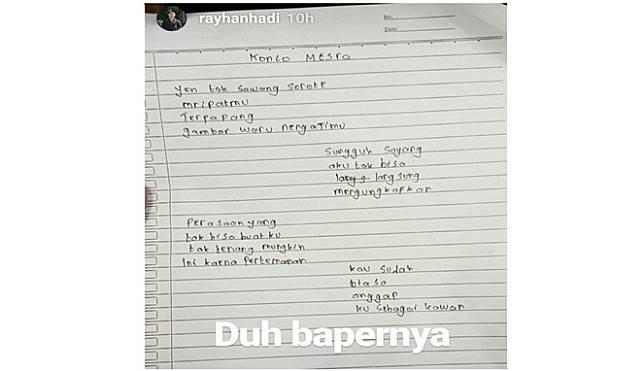 rayhanhadi 10h
No.
Date:
Konco Mesra
yen tak sawang sorote
mripatmu
Terpapang
gambar waru neng aTimu
Sungguh Sayang
aku tak bisa
langsung
mengungkapkan
Perasaan yang
tak bisa buat ku
tak tenang mungkin
Ini karna Pertemanan
kau sudah
biasa
anggap
ku sebagai kawan
Duh bapernya